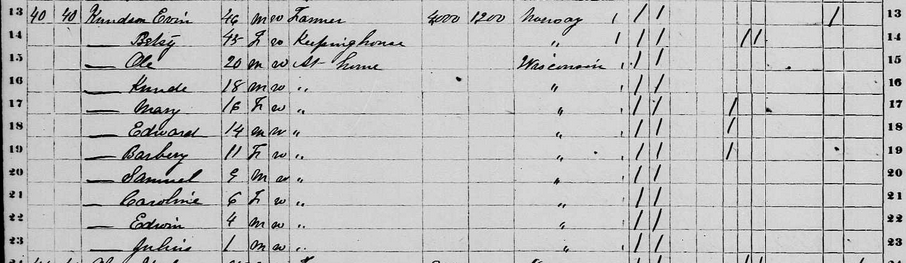 13 40 40 Knudson Evin 46 m w Farmer 4000 1200 Norway 1 / / / 13
14 — Betsy 45 F w Keeping house " 1 / / / / 14
15 — Ole 20 m w At home Wisconsin / / 15
16 — Knude 18 m w " " / / 16
17 — Mary 16 F w " " / / / 17
18 — Edward 14 m w " " / / / 18
19 — Barbery 11 F w " " / / / 19
20 — Samuel 9 m w " " / / 20
21 — Caroline 6 F w " " / / 21
22 — Edwin 4 m w " " / / 22
23 — Julius 1 m w " " / / 23